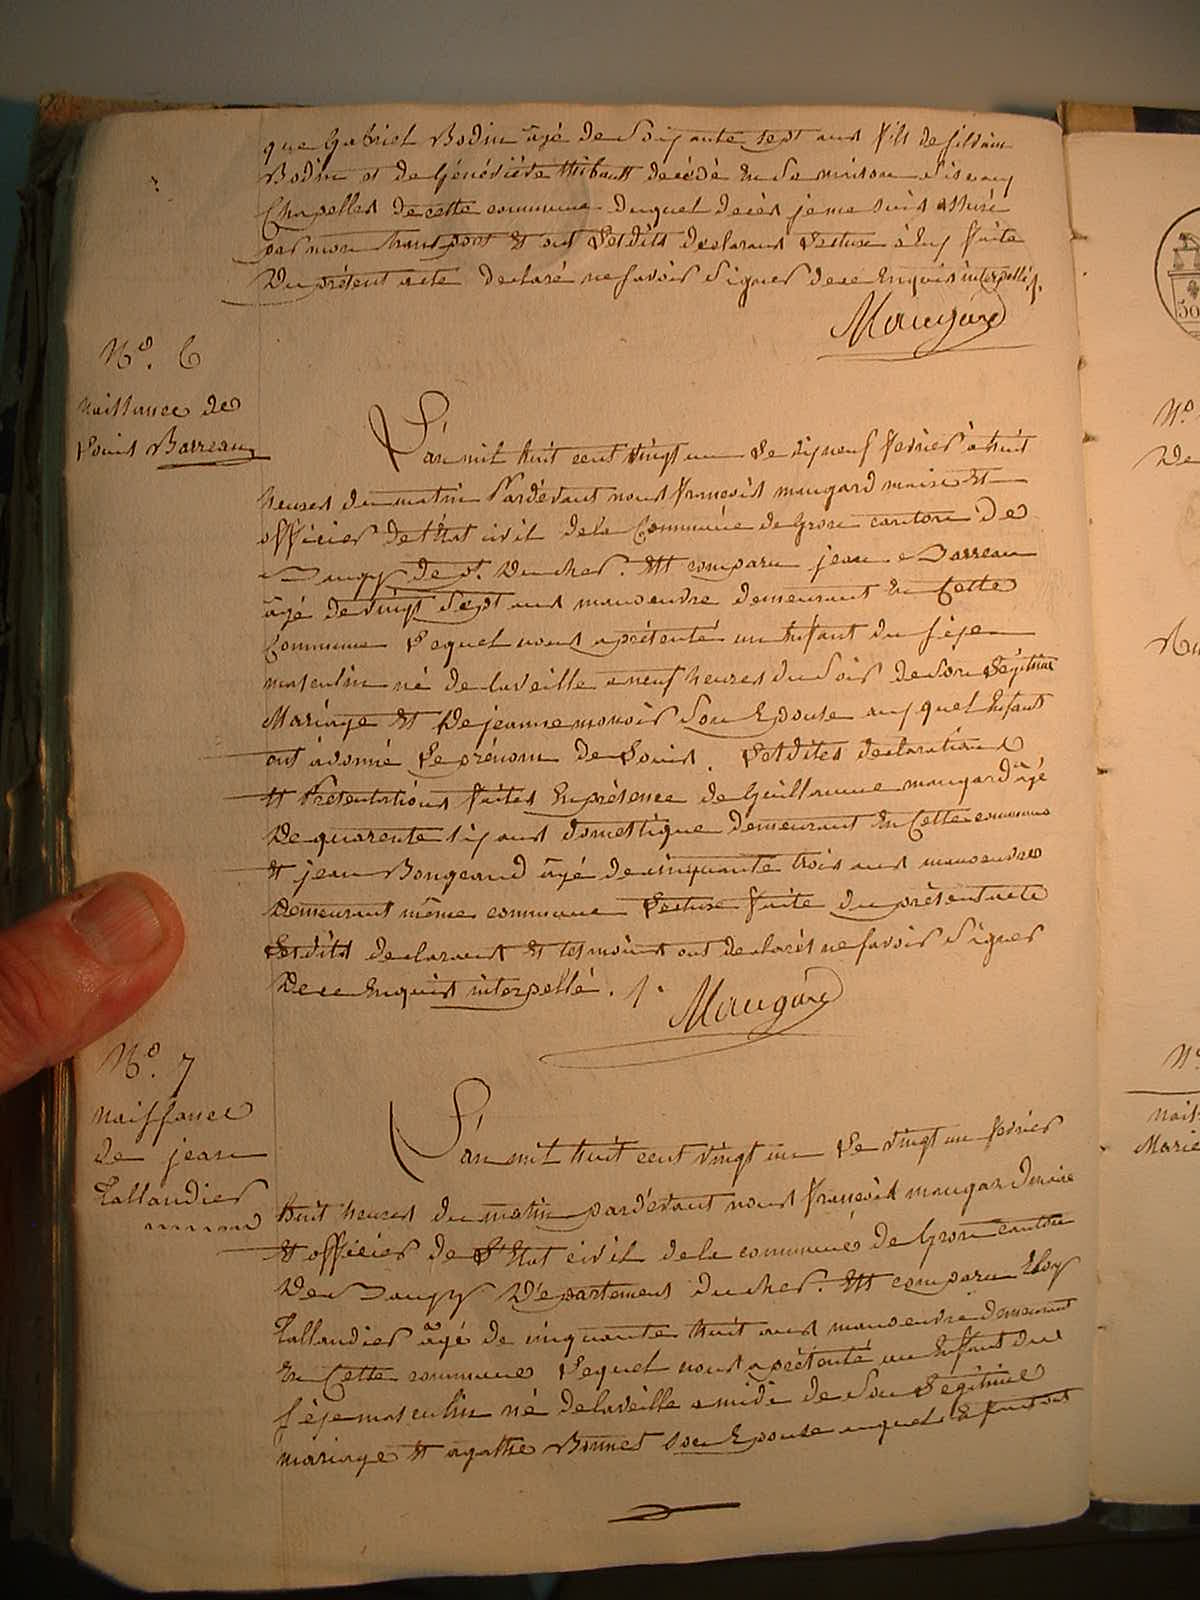 que Gabriel Bodin âgé de Soixante Sept ans fils de Silvain
Bodin et de Généviéve thibault decédé en Sa maison Sise aux
Chapelles de cette commune duquel decès je me suis assuré
par mon transport et ont Lesdits declarans Lecture à eux faite
Du présent acte declaré ne savoir Signer de ce Enquis interpellés.
Maugard
No. 6
naissance de
Louis Barreau
L'an mil huit cent vingt un Le dix neuf fevrier à huit
heures du matin Pardevant nous françois maugard maire et
officier de l'Etat civil de la Commune de Gron canton de
Baugy de.t. Du cher. Est comparu jean Barreau
âgé de vingt Sept ans manoeuvre demeurant En Cette
Commune Lequel nous a présenté un Enfant du Séxe
masculin né de la veille a neuf heures du Soir de Son Légitime
Mariage Et De jeanne Son Epouse auquel Enfant
ont à donné Le prénom de Louis. Lesdites declarations
Et Présentations faites En présence de Guillaume maugard âgé
De quarente Six ans domestique demeurant En Cette commune
Et jean Bongrand âgé de cinquante trois ans manoeuvre
Demeurant même commune Lecture faite du présent acte
Lesdits declarant Et tesmoins ont declarés ne savoir Signer
De ce Enquis interpellé.
Maugard
No. 7
naissance
de jean
Tallandier
L'an mil huit cent vingt un Le vingt un fevrier
huit heures du matin pardevant nous françois maugard maire
Et officier de L'Etat civil de la commune de Gron canton
De Baugy Département du cher. Est comparu Eloy
Tallandier âgé de cinquante huit ans manoeuvre demeurant
En Cette commune Lequel nous a présenté un Enfant du
Séxe masculin né de la veille a midi de Son Légitime
mariage Et agathe Bonnet Son Epouse auquel Enfant ont
50
No.
De
No.
nais
Marie